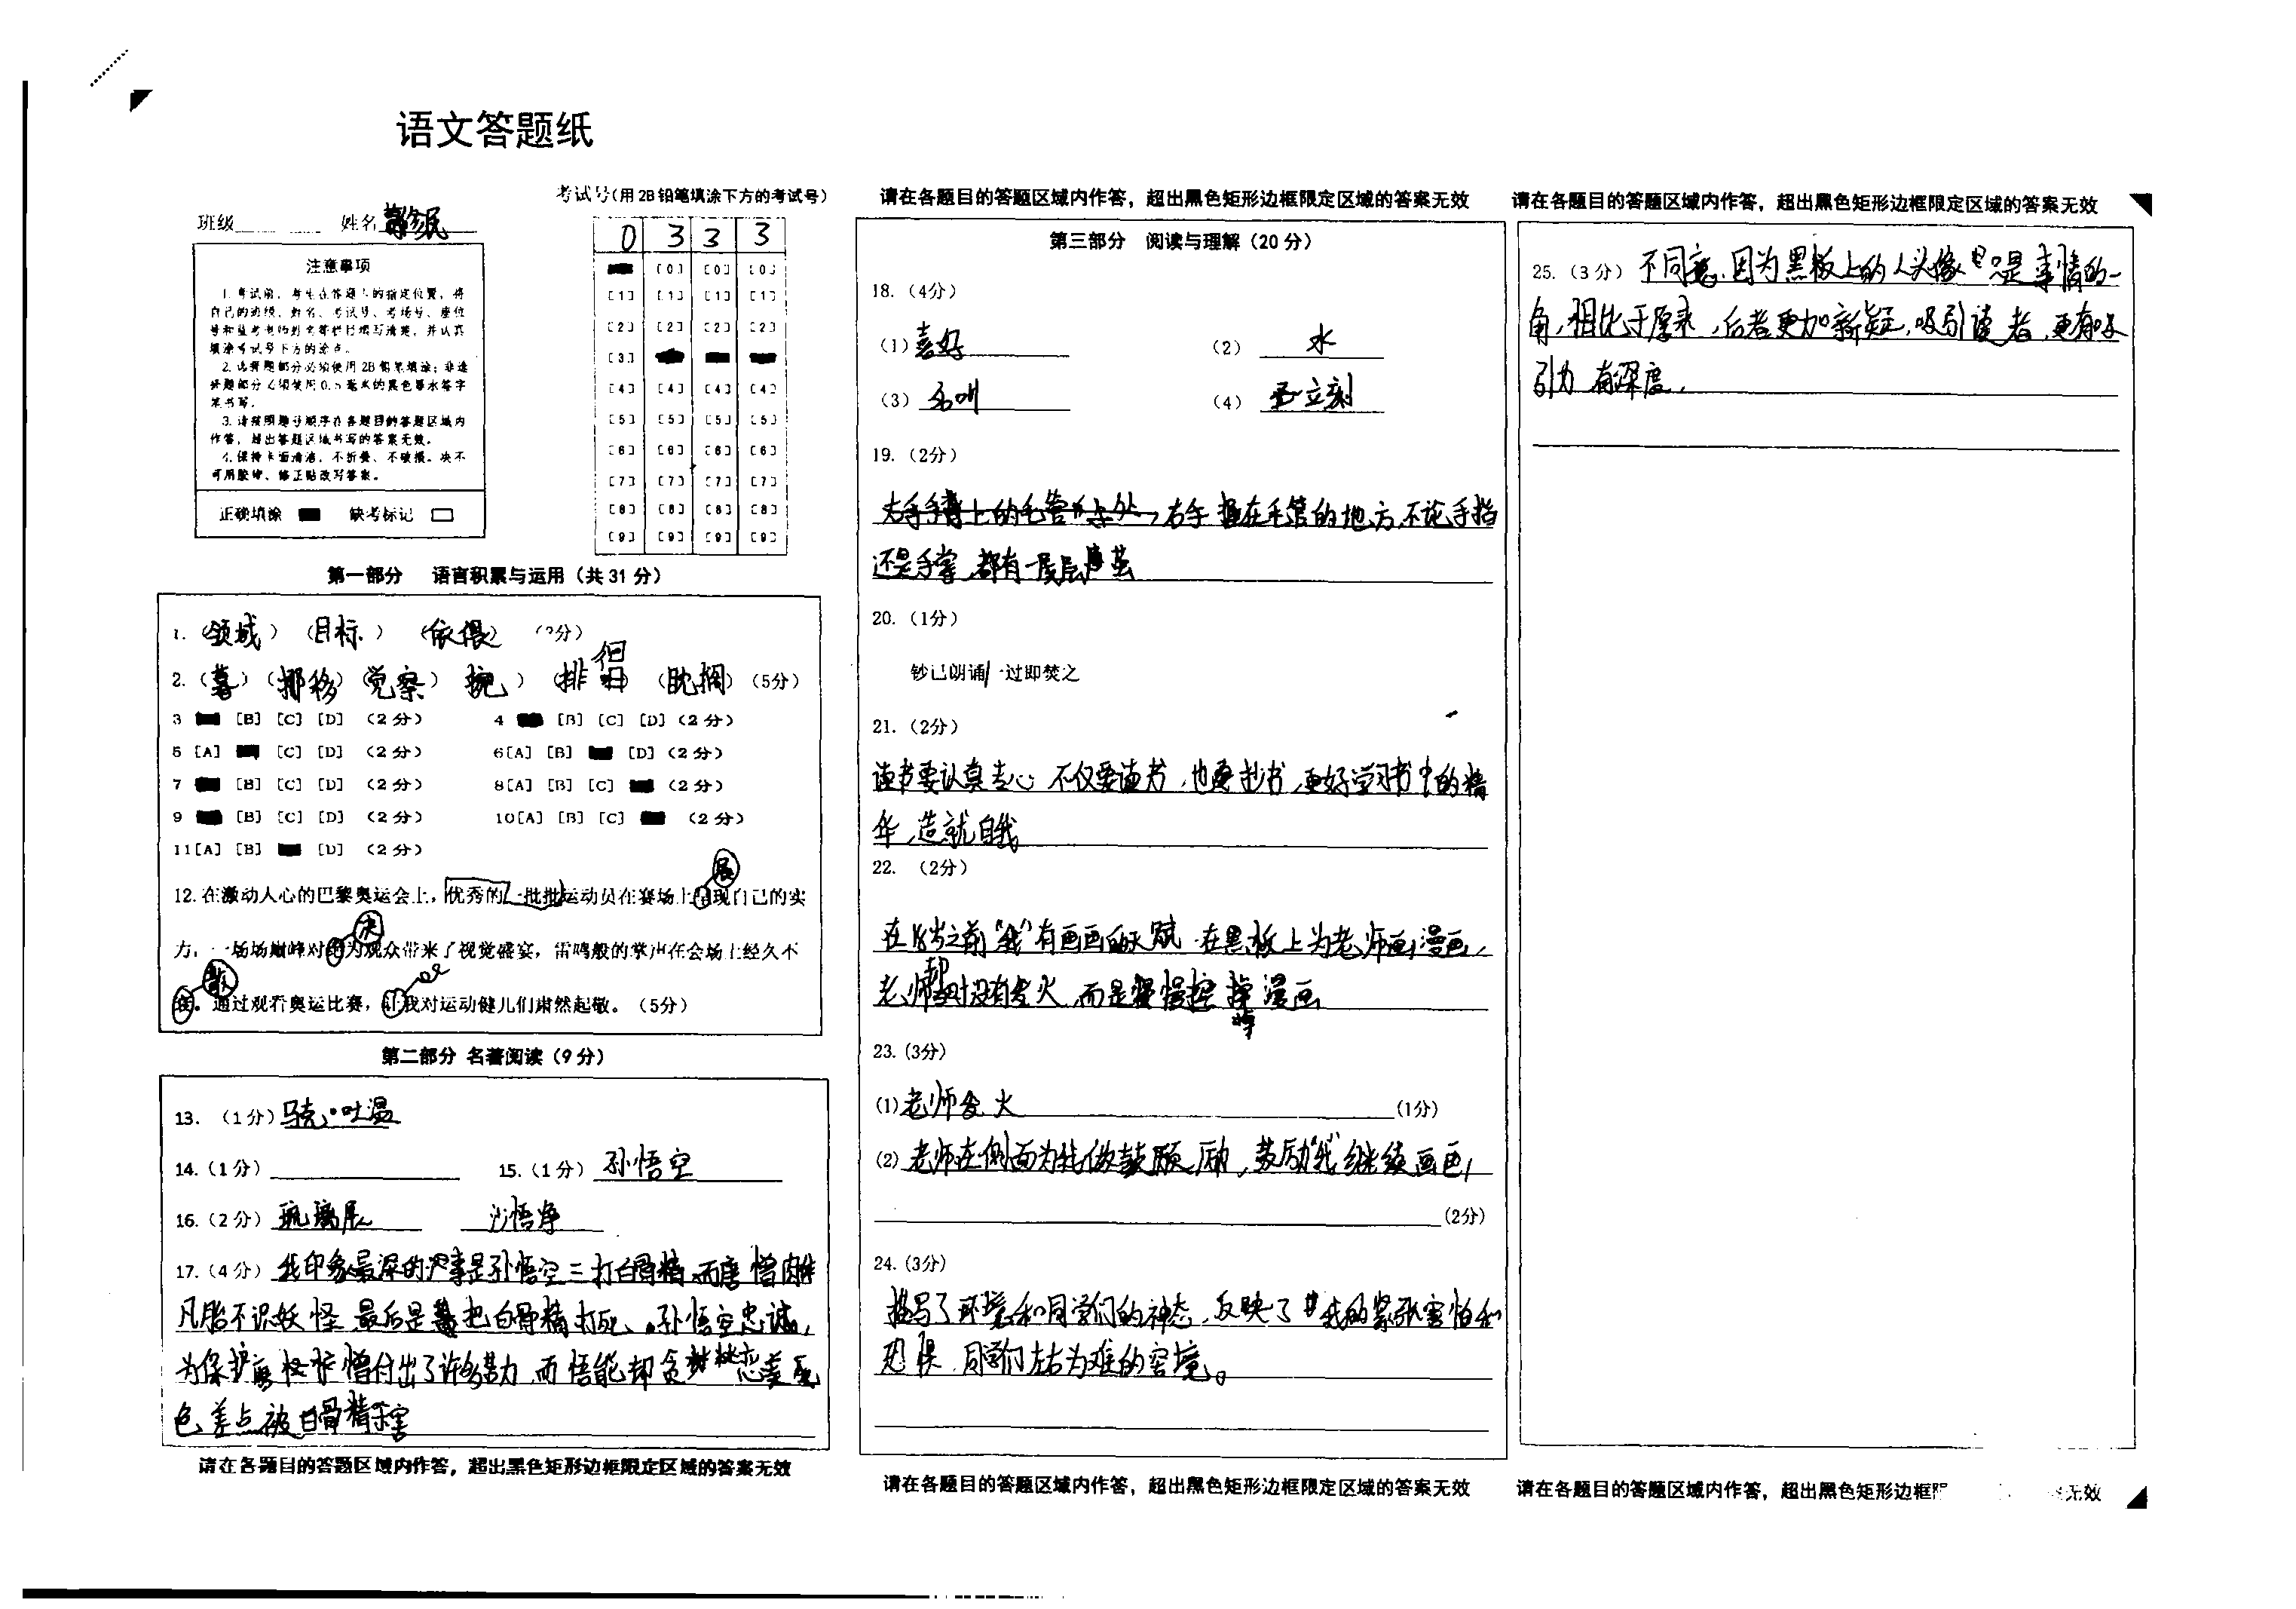 语文答题纸
考试号(用 2B 铅笔填涂下方的考试号)
班级 姓名
0 3 3 3
注意事项
1.考试前,考生在答题卡的指定位置,将
自己的班级、姓名、考试号、考场号、座位
号和监考老师姓名等栏目填写清楚,并认真
填涂考试号下方的涂点。
2.选择题部分必须使用 2B 铅笔填涂;非选
择题部分必须使用 0.5 毫米的黑色墨水签字
笔书写。
3.请按照题号顺序在各题目的答题区域内
作答,超出答题区域书写的答案无效。
4.保持卡面清洁,不折叠、不破损。决不
可用胶带、修正贴改写答案。
正确填涂 缺考标记
[0] [0] [0]
[1] [1] [1] [1]
[2] [2] [2] [2]
[3]
[4] [4] [4] [4]
[5] [5] [5] [5]
[6] [6] [6] [6]
[7] [7] [7] [7]
[8] [8] [8] [8]
[9] [9] [9] [9]
第一部分 语言积累与运用(共 31 分)
1.(领域)(目标)(依偎)
2.(暮)(挪移)(觉察)(拖)(排 徊)(耽搁)(5分)
3 [B] [C] [D] (2 分) 4 [B] [C] [D] (2 分)
5 [A] [C] [D] (2 分) 6[A] [B] [D] (2 分)
7 [B] [C] [D] (2 分) 8[A] [B] [C] (2 分)
9 [B] [C] [D] (2 分) 10[A] [B] [C] (2 分)
11[A] [B] [D] (2 分)
展
12.在激动人心的巴黎奥运会上,优秀的一批批运动员在赛场上 现自己的实
决
力,一场场巅峰对 为观众带来了视觉盛宴,雷鸣般的掌声在会场上经久不
散
。通过观看奥运比赛,让我对运动健儿们肃然起敬。(5分)
第二部分 名著阅读(9 分)
13.(1 分)马克·吐温
14.(1 分) 15.(1 分)孙悟空
16.(2 分)琉璃盏 沙悟净
17.(4 分)我印象最深的故事是孙悟空三打白骨精,而唐僧肉体
凡胎不识妖怪 最后是 把白骨精打死。孙悟空忠诚,
为保护唐 僧付出了许多努力 而悟能却贪 恋美
色,差点被白骨精 害
请在各题目的答题区域内作答,超出黑色矩形边框限定区域的答案无效
请在各题目的答题区域内作答,超出黑色矩形边框限定区域的答案无效
第三部分 阅读与理解(20 分)
18.(4分)
(1)喜好 (2) 水
(3)名叫 (4) 立刻
19.(2分)
右手握在毛管的地方,不论手指
还是手掌,都有一层层 茧
20.(1分)
钞已朗诵/一过即焚之
21.(2分)
读书要认真专心 不仅要读书,也要抄书,更好学习书中的精
华,造就自我
22. (2分)
在 之前"我"有画画的天赋 在黑板上为老师画漫画,
老师却没有发火,而是 慢慢擦掉漫画
23.(3分)
(1)老师发火 (1分)
(2)老师在侧面为我做鼓 励,鼓励"我"继续画画,
(2分)
24.(3分)
描写了环境和同学们的神态,反映了 我的紧张害怕和
恐惧,同学们左右为难的窘境。
请在各题目的答题区域内作答,超出黑色矩形边框限定区域的答案无效
请在各题目的答题区域内作答,超出黑色矩形边框限定区域的答案无效
25.(3 分)不同意,因为黑板上的人头像 只是事情的一
角,相比于原来,后者更加新颖,吸引读者,更有吸
引力 有深度,
请在各题目的答题区域内作答,超出黑色矩形边框 无效